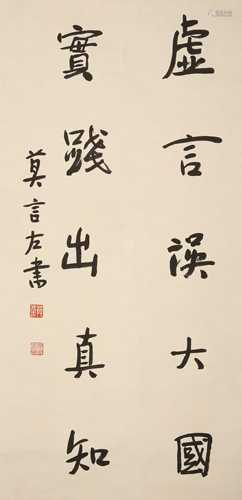 虛言誤大國
實踐出真知
莫言左书